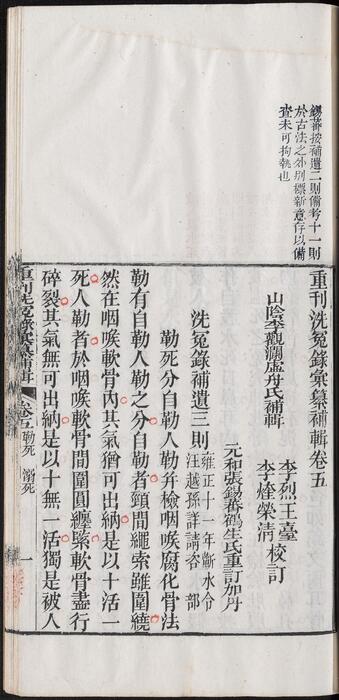 錫蕃按補遺二則備考十一則
於古法之外別標新意存以備
查未可拘執也
重刊洗冤錄彙纂補輯卷五
山陰李觀瀾虛舟氏補輯
李烈王臺
李煃榮清
校訂
元和張錫蕃鶴生氏重訂加丹
洗冤錄補遺三則
雍正十一年蘄水令
汪越孫詳請咨部
勒死分自勒人勒幷檢咽喉腐化骨法
勒有自勒人勒之分自勒者頸間繩索雖圍繞
然在咽喉軟骨內其氣猶可出納是以十活一
死人勒者於咽喉軟骨間圍圓纏緊軟骨盡行
碎裂其氣無可出納是以十無一活獨是被人
重刊洗冤錄彙纂補輯
卷五
勒死
溺死
一